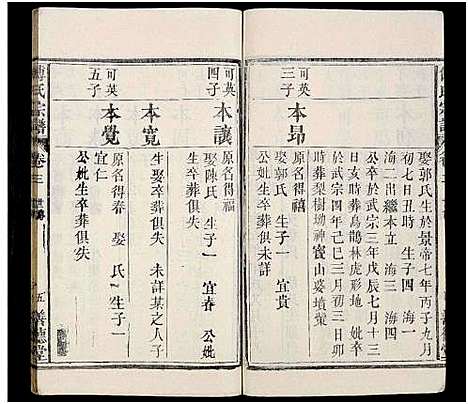 娶郭氏生於景帝七年丙子九月
初七日丑時 生子四 海一
海二出繼本立 海三 海四
公卒於武宗三年戊辰七月
日亥時葬鳥鵲林虎形地 妣卒
於武宗四年己巳三月初三日卯
時葬梨樹坳神 山婆墳
可英
三子
本昂
原名得禧
娶郭氏 生子一 宜貴
公妣生卒葬俱失詳
可英
四子
本讓
原名得福
娶陳氏 生子一 宜春 公妣
生卒葬俱失
本寬
生娶卒葬俱失 未詳某之人子
可英
五子
本覺
原名得春 娶 氏 生子一
宜仁
公妣生卒葬俱失
傅氏宗譜
卷三
五
善德堂